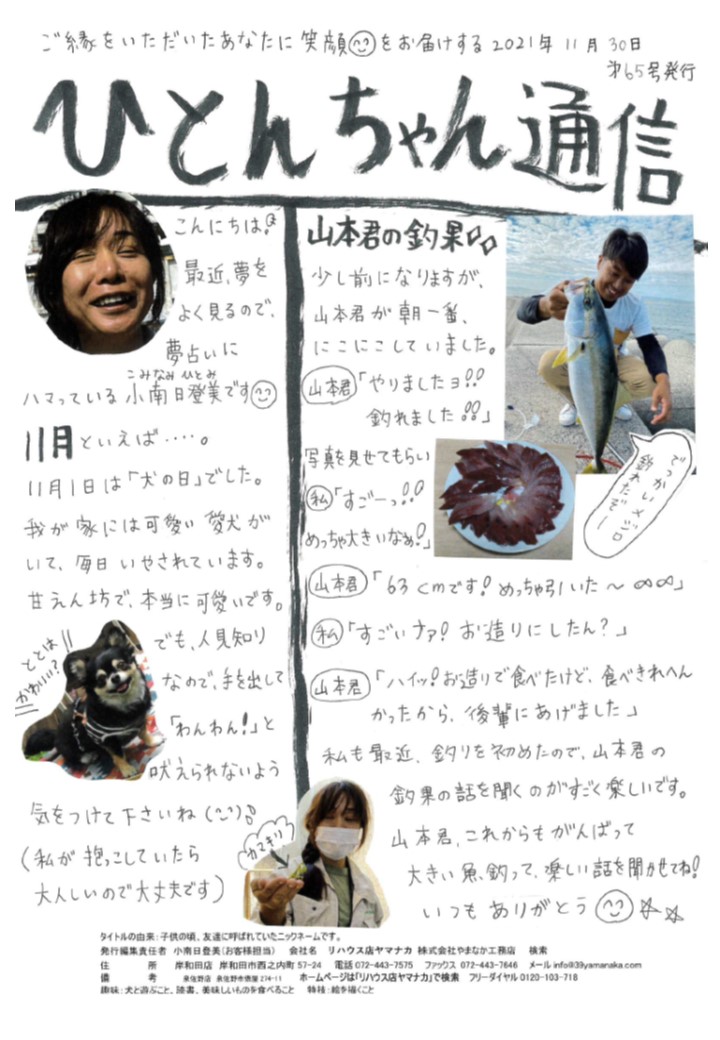 ご縁をいただいたあなたに笑顔をお届けする 2021年 11月 30日
第65号発行
ひとんちゃん通信
こんにちは!
最近、夢を
よく見るので、
夢占いに
こみなみ ひとみ
ハマっている 小南日登美です
11月といえば・・・・。
11月1日は「犬の日」でした。
我が家には可愛い愛犬が
いて、毎日いやされています。
甘えん坊で、本当に可愛いです。
ととは
かわいい?
でも、人見知り
なので、手を出して
「わんわん!」と
吠えられないよう
気をつけて下さいね
(私が抱っこしていたら
大人しいので大丈夫です)
山本君の釣果
少し前になりますが、
山本君が朝一番、
にこにこしていました。
山本君「やりましたョ!!
釣れました!!」
写真を見せてもらい
私「すごーっ!!
めっちゃ大きいなぁ!」
でっかいメジロ
釣れたぞー
山本君「63cmです! めっちゃ引いた〜∞∞」
私「すごいナァ! お造りにしたん?」
山本君「ハイッ!お造りで食べたけど、食べきれへん
かったから、後輩にあげました」
私も最近、釣りを初めたので、山本君の
釣果の話を聞くのがすごく楽しいです。
山本君、これからもがんばって
大きい魚、釣って、楽しい話を聞かせてね!
いつもありがとう
カマキリ
タイトルの由来:子供の頃、友達に呼ばれていたニックネームです。
発行編集責任者 小南日登美(お客様担当) 会社名 リハウス店ヤマナカ 株式会社やまなか工務店 検索
住 所 岸和田店 岸和田市西之内町 57-24 電話 072-443-7575 ファックス 072-443-7646 メール info@39yamanaka.com
備 考 泉佐野店 泉佐野市鶴屋 274-11 ホームページは「リハウス店ヤマナカ」で検索 フリーダイヤル 0120-103-718
趣味:犬と遊ぶこと、読書、美味しいものを食べること 特技:絵を描くこと